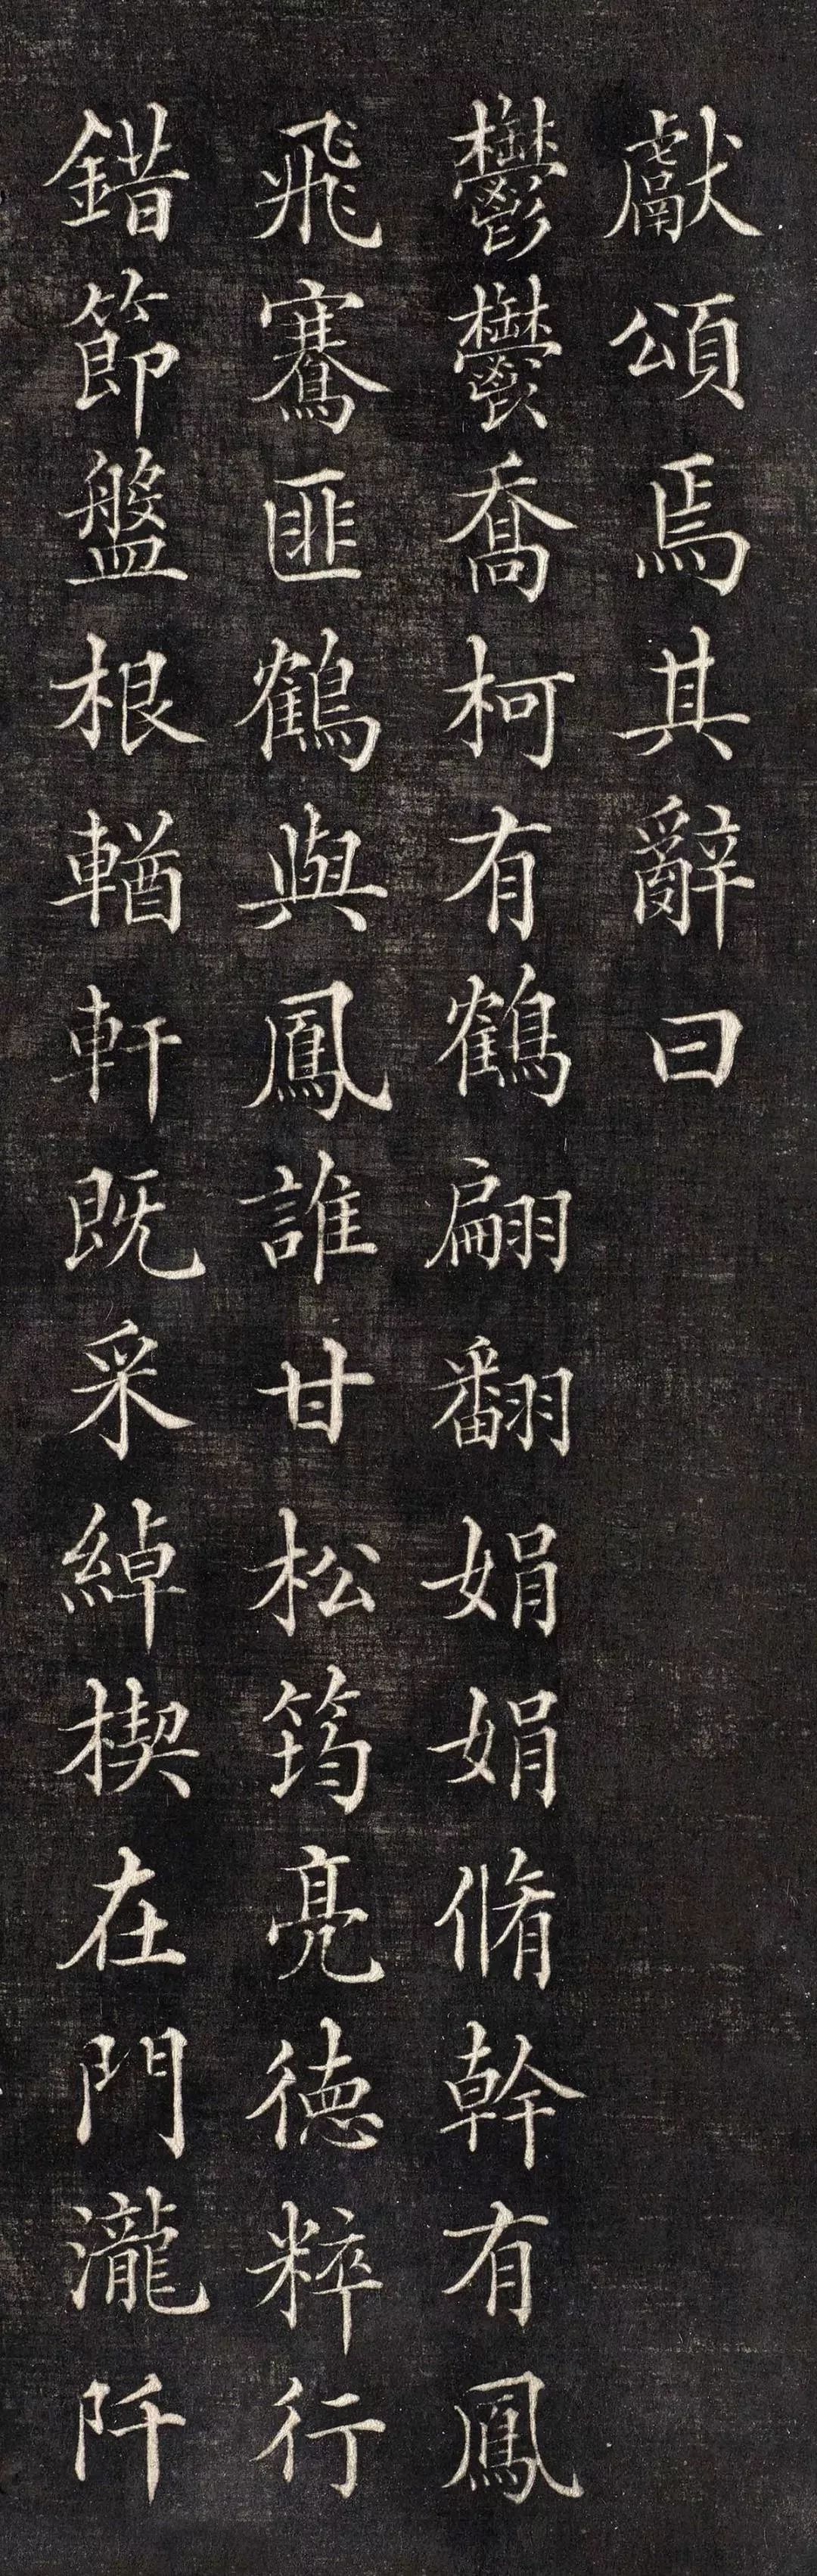 獻頌焉其辭曰
鬱鬱喬柯有鶴翩翻娟娟脩幹有鳳
飛騫匪鶴與鳳誰甘松筠亮德粹行
錯節盤根輶軒既采綽楔在門瀧阡